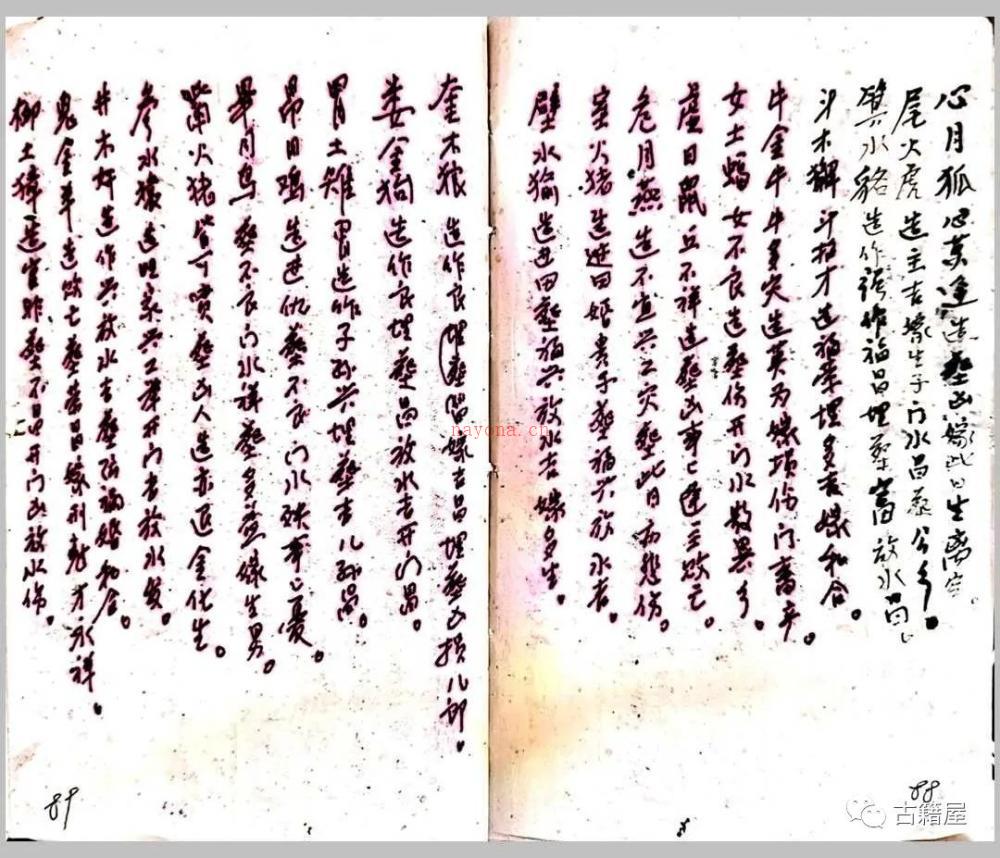 心月狐心莫逢造葬凶嫁此日生离
尾火虎造主吉嫁生子门水昌葬公
水貐造作福昌埋葬富放水
斗木獬斗技才造福葬埋多吉嫁和合。
牛金牛牛多灾造葬为嫁项伤门畜卒。
女土蝠女不良造葬伤开门水数异。
虚日鼠丘不祥造葬凶事亡逢主败亡。
危月燕造不宜兴工灾葬此日病悲伤。
室火猪造进田婚贵子葬福兴放水吉。
壁水㺄造进田葬福兴放水吉嫁多生。
88
奎木狼造作良埋葬留嫁吉昌埋葬凶损儿郎。
娄金狗造作良埋葬昌放水吉开门昌。
胃土雉胃造作子孙兴埋葬吉儿孙昌。
昴日鸡造进 葬不良门水 事亡忧。
毕月乌葬不良门水祥葬多 嫁生男。
觜火猪 葬凶人造亦退金化生。
参水猿造旺家兴工葬开门吉放水
井木犴造作兴放水吉葬 婚和合。
鬼金羊造败亡葬吉昌嫁刑 才永祥。
柳土獐造官非葬不昌开门凶放水伤。
89
nayona.cn
古籍屋